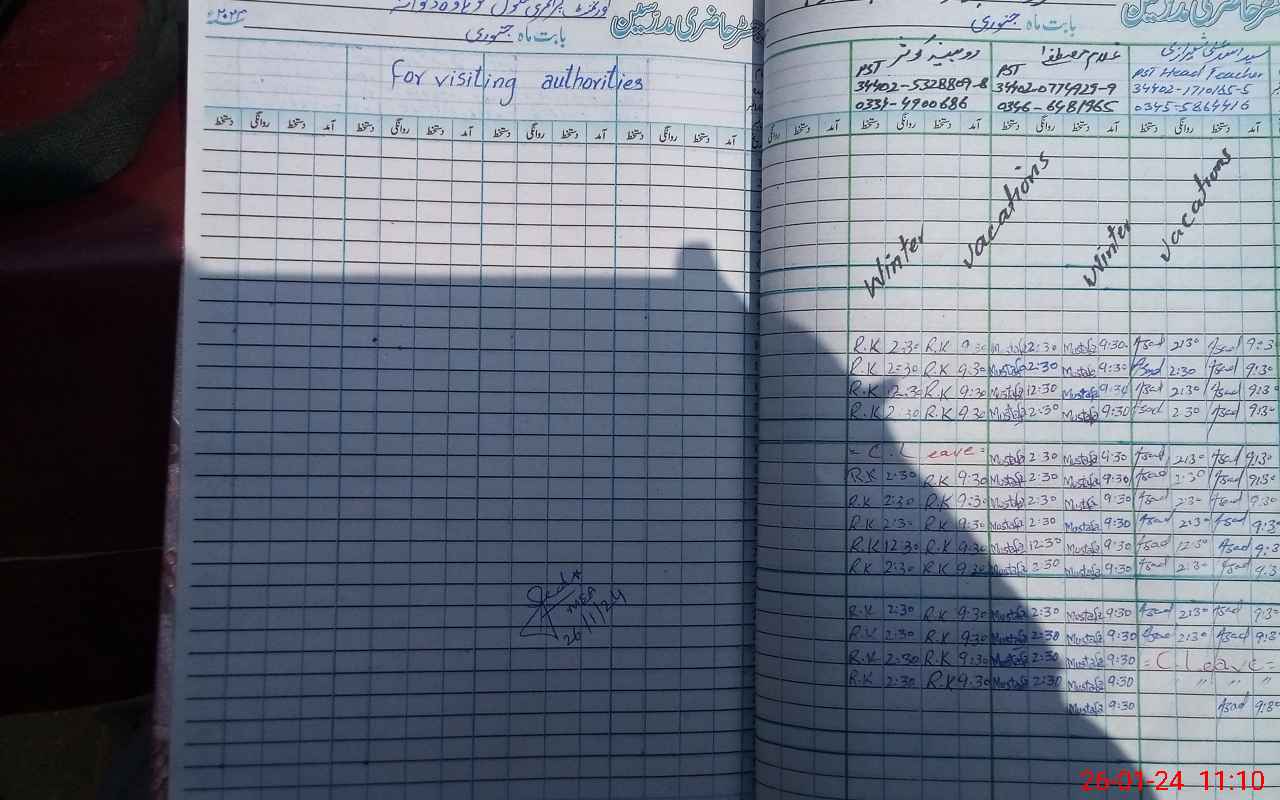 ۲۰۲۴ء
بابت ماہ جنوری
For visiting authorities
دستخط روانگی دستخط آمد دستخط روانگی دستخط آمد دستخط روانگی دستخط آمد دستخط روانگی دستخط آمد
MEA
26/1/24
حاضری مدرسین
بابت ماہ جنوری
روبینہ کوثر
PST
34402-5328809-8
0334-4900686
غلام مصطفیٰ
PST
34402-0774929-9
0346-6481965
PST Head Teacher
34402-1710165-5
0345-5864416
روانگی دستخط آمد دستخط روانگی دستخط آمد دستخط روانگی دستخط آمد دستخط روانگی دستخط آمد
Winter vacations
Winter vacations
R.K 2:30 R.K 9:30 Mustafa 2:30 Mustafa 9:30 Asad 2:30 Asad 9:3
R.K 2:30 R.K 9:30 Mustafa 2:30 Mustafa 9:30 Asad 2:30 Asad 9:30
R.K 12:30 R.K 9:30 Mustafa 12:30 Mustafa 9:30 Asad 2:30 Asad 9:30
R.K 2:30 R.K 9:30 Mustafa 2:30 Mustafa 9:30 Asad 2:30 Asad 9:30
= C. Leave = Mustafa 2:30 Mustafa 9:30 Asad 2:30 Asad 9:30
R.K 2:30 R.K 9:30 Mustafa 2:30 Mustafa 9:30 Asad 2:30 Asad 9:30
R.K 2:30 R.K 9:30 Mustafa 2:30 Mustafa 9:30 Asad 2:30 Asad 9:30
R.K 2:30 R.K 9:30 Mustafa 2:30 Mustafa 9:30 Asad 2:30 Asad 9:3
R.K 12:30 R.K 9:30 Mustafa 12:30 Mustafa 9:30 Asad 12:30 Asad 9:3
R.K 2:30 R.K 9:30 Mustafa 2:30 Mustafa 9:30 Asad 2:30 Asad 9:3
R.K 2:30 R.K 9:30 Mustafa 2:30 Mustafa 9:30 Asad 2:30 Asad 9:3
R.K 2:30 R.K 9:30 Mustafa 2:30 Mustafa 9:30 Asad 2:30 Asad 9:3
R.K 2:30 R.K 9:30 Mustafa 2:30 Mustafa 9:30 = C. Leave =
R.K 2:30 R.K 9:30 Mustafa 2:30 Mustafa 9:30 " " " "
Mustafa 9:30 Asad 9:30
26-01-24 11:10